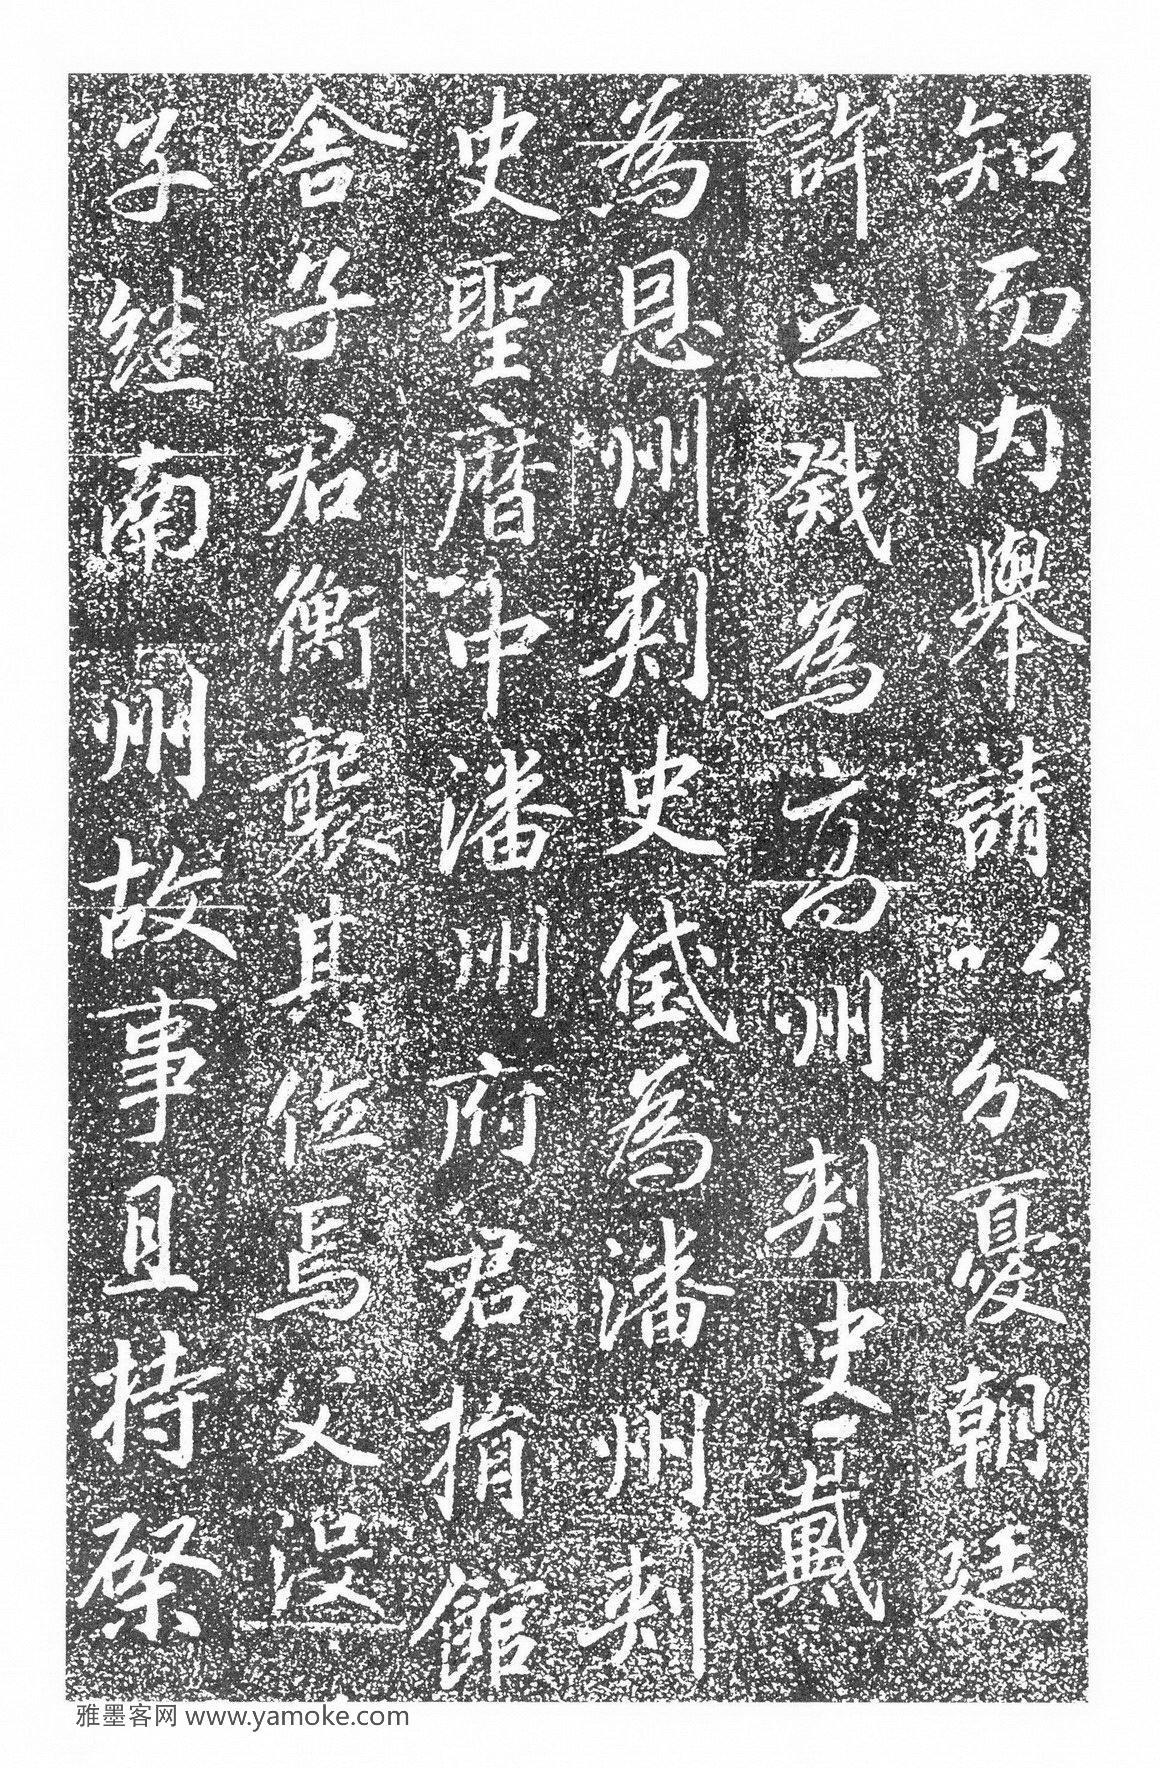 知而内舉請以分憂朝廷
許之戣為高州刺史戴
為恩州刺史𢓜為潘州刺
史聖曆中潘州府君捐館
舍子君衡襲其位焉父没
子继南州故事且持棨
雅墨客网 www.yamoke.com